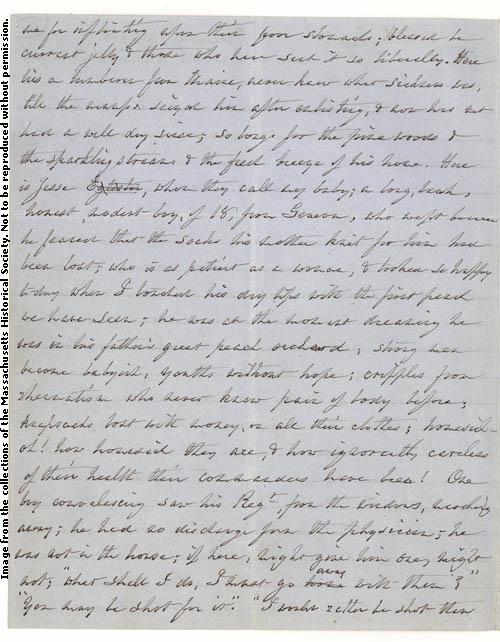 Image from the collections of the Massachusetts Historical Society. Not to be reproduced without permission.
me for inflicting upon their poor stomachs; blessed be
currant jelly & those who have sent it so liberally. Here
lies a lumberer from Maine, never knew what sickness was,
till the seized him after enlisting, & now has not
had a well day since; so longs for the pine woods &
the sparkling streams & the fresh breeze of his home. Here
is Jesse whom they call my baby; a long, lank,
honest modest boy, of 18, from Geneva, who wept because
he feared that the socks his mother knit for him had
been lost; who is as patient as a woman, & looked so happy
to-day when I touched his dry lips with the first peach
we have seen; he was at the moment dreaming he
was in his father's great peach orchard; strong men
become babyish, youths without hope; cripples from
rheumatism who never knew pain of body before;
knapsacks lost with money, or all their clothes; homesick-
oh! how homesick they are, & how ignorantly careless
of their health their commanders have been! One
boy convalescing saw his Regt, from the windows, marching
away; he had no discharge from the physician; he
was not in the house; if here, might give him one, might
not; "what shall I do, I must go away with them?"
"You may be shot for it." "I would rather be shot than